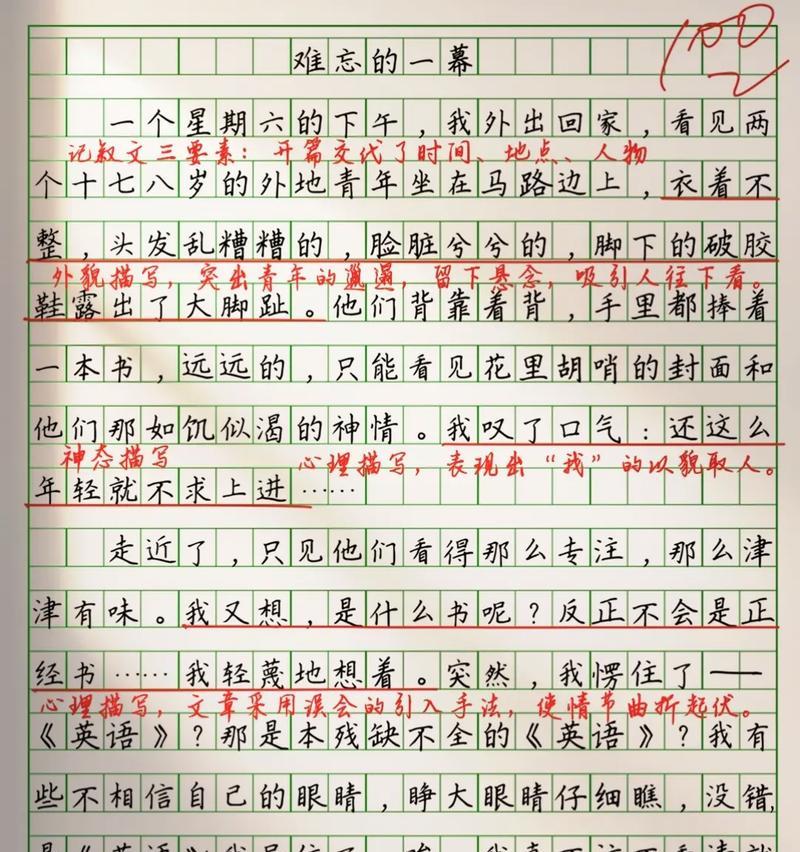 100
难忘的一幕
一个星期六的下午，我外出回家，看见两
记叙文三要素：开篇交代了时间、地点、人物
个十七八岁的外地青年坐在马路边上，衣着不
整，头发乱糟糟的，脸脏兮兮的，脚下的破胶
外貌描写，突出青年的邋遢，留下悬念，吸引人往下看。
鞋露出了大脚趾。他们背靠着背，手里都捧着
一本书，远远的，只能看见花里胡哨的封面和
他们那如饥似渴的神情。我叹了口气：还这么
神态描写 心理描写，表现出“我”的以貌取人。
年轻就不求上进……
走近了，只见他们看得那么专注，那么津
津有味。我又想，是什么书呢？反正不会是正
经书……我轻蔑地想着。突然，我愣住了——
心理描写，文章采用误会的引入手法，使情节曲折起伏。
《英语》？那是本残缺不全的《英语》？我有
些不相信自己的眼睛，睁大眼睛仔细瞧，没错，